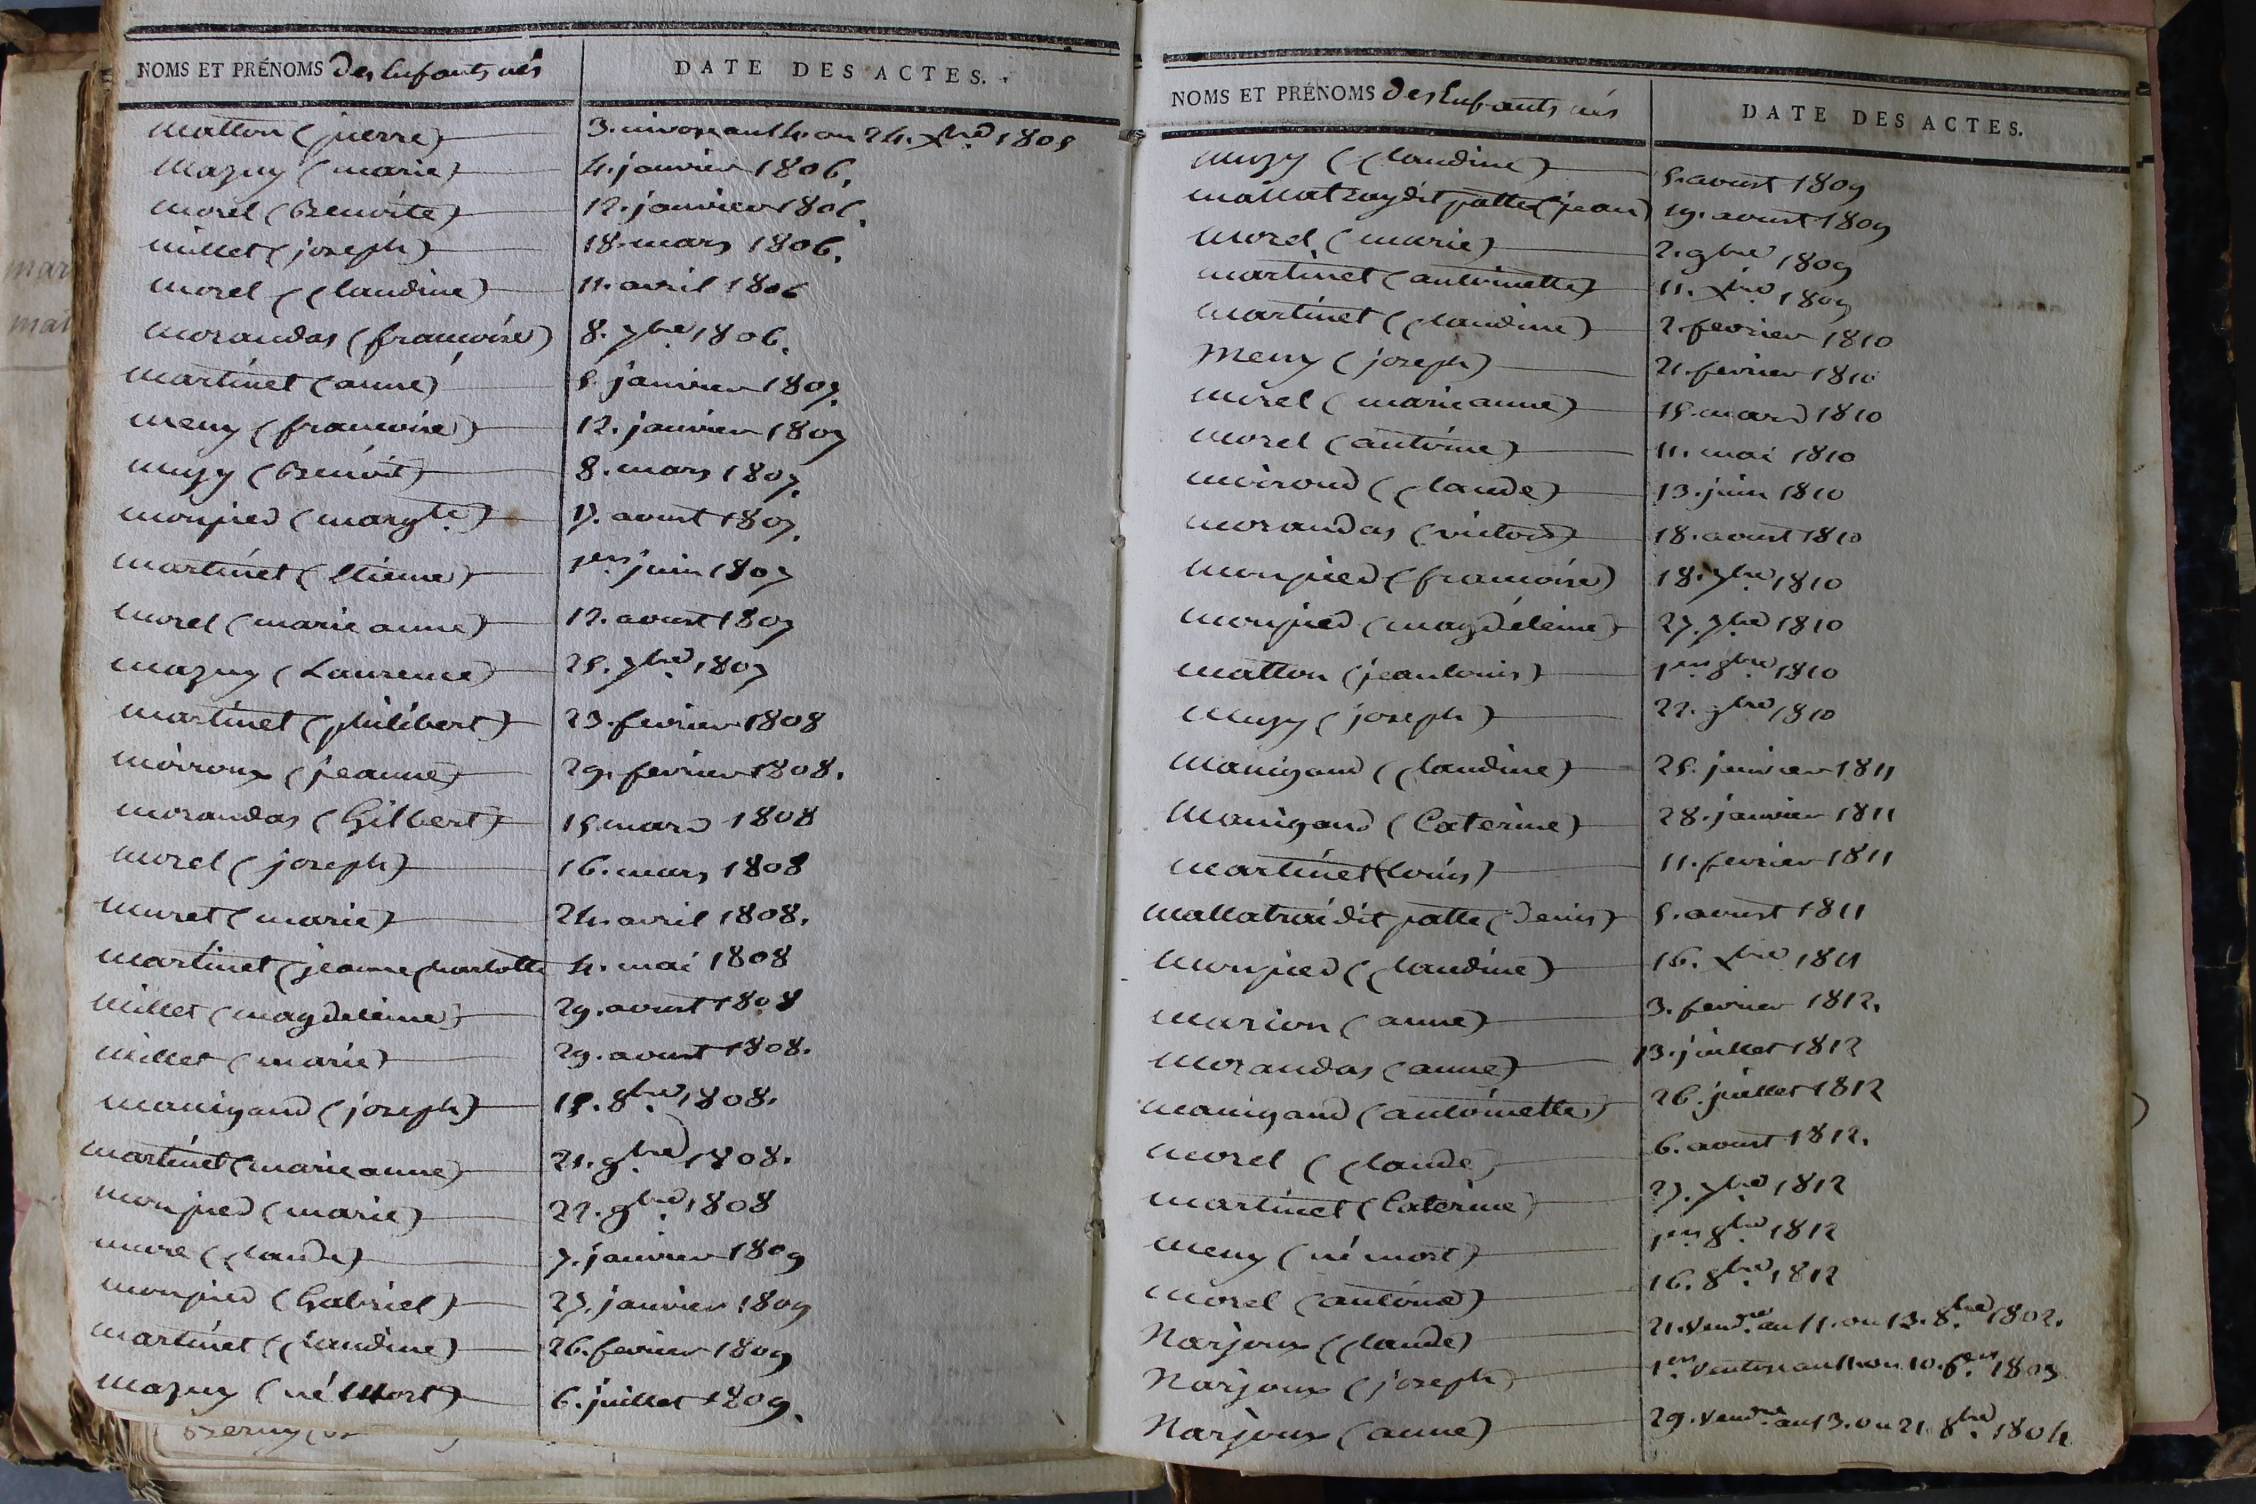 NOMS ET PRÉNOMS des Enfants nés
DATE DES ACTES.
matton (pierre) 3. nivose an 14. ou 24. xbre 1805
Mazuy (marie) 4. janvier 1806.
morel (Benoite) 12. janvier 1806.
millet (joseph) 18. mars 1806.
morel (Claudine) 11. avril 1806
morandas (francoise) 8. 7bre 1806.
martinet (anne) 5. janvier 1807.
meny (francoise) 12. janvier 1807
muzy (Benoit) 8. mars 1807.
monpied (margte) 17. aoust 1807.
martinet (Etienne) 1er juin 1807
morel (marie anne) 12. aoust 1807
mazuy (Laurence) 25. 7bre 1807
martinet (philibert) 23. fevrier 1808
moiroux (jeanne) 29. fevrier 1808.
morandas (Gilbert) 15 mars 1808
morel (joseph) 16. mars 1808
muret (marie) 24. avril 1808.
martinet (jeanne charlotte 4. mai 1808
millet (magdeleine) 29. aoust 1808
millet (marie) 29. aoust 1808.
manigand (joseph) 15. 8bre 1808.
martinet (marie anne) 21. 9bre 1808.
monpied (marie) 22. 9bre 1808
mure (Claude) 7. janvier 1809
monpied (Gabriel) 27. janvier 1809
martinet (Claudine) 26. fevrier 1809
mazuy (né Mort) 6. juillet 1809.
NOMS ET PRÉNOMS des Enfants nés
DATE DES ACTES.
muzy (Claudine) 5. aoust 1809
mallatray dit patte (jean) 19. aoust 1809
morel (marie) 2. 9bre 1809
martinet (antoinette) 11. xbre 1809
martinet (Claudine) 2. fevrier 1810
meny (joseph) 21. fevrier 1810
morel (marie anne) 15 mars 1810
morel (antoine) 11. mai 1810
moiroud (Claude) 13. juin 1810
morandas (victor) 18. aoust 1810
monpied (francoise) 18. 7bre 1810
monpied (magdéleine) 27. 7bre 1810
matton (jean louis) 1er 8bre 1810
Muzy (joseph) 22. 9bre 1810
manigand (Claudine) 25. janvier 1811
manigand (Caterine) 28. janvier 1811
martinet (louis) 11. fevrier 1811
mallatrai dit patte (Denis) 5. aoust 1811
monpied (Claudine) 16. xbre 1811
marion (anne) 3. fevrier 1812.
Morandas (anne) 13. juillet 1812
manigand (antoinette) 26. juillet 1812
morel (Claude) 6. aoust 1812.
martinet (Caterine) 27. 7bre 1812
meny (né mort) 1er 8bre 1812
morel (antoine) 16. 8bre 1812
Narjoux (Claude) 21. Vendre an 11. ou 13. 8bre 1802.
Narjoux (joseph) 1er Ventose an 11 ou 1803
Narjoux (anne) 29. Vendre an 13. ou 21. 8bre 1804